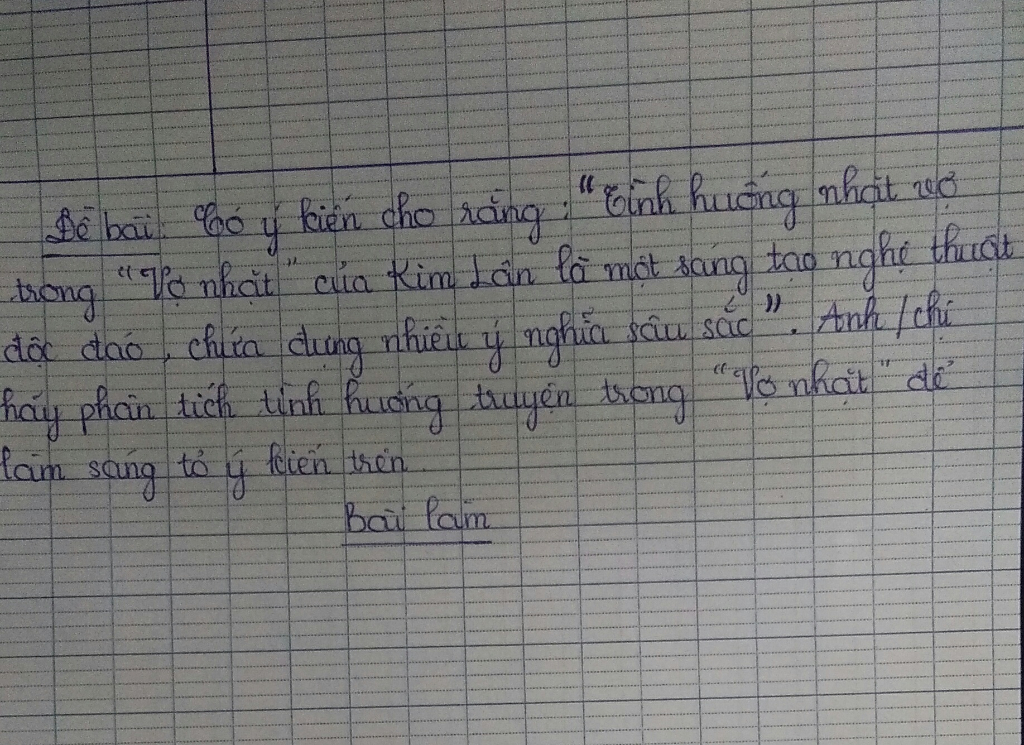 Đề bài: Có ý kiến cho rằng: "Tình huống nhặt vợ
trong "Vợ nhặt" của Kim Lân là một sáng tạo nghệ thuật
độc đáo, chứa đựng nhiều ý nghĩa sâu sắc". Anh/chị
hãy phân tích tình huống truyện trong "Vợ nhặt" để
làm sáng tỏ ý kiến trên.
Bài làm